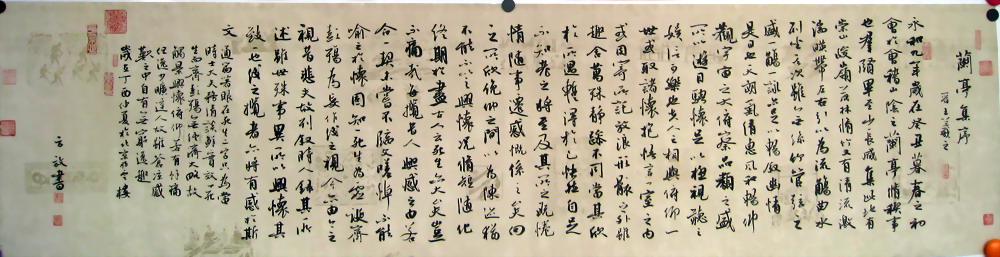 蘭亭集序
晋王羲之
永和九年歲在癸丑暮春之初
會於會稽山陰之蘭亭脩禊事
也群賢畢至少長咸集此地有
崇山峻嶺茂林脩竹又有清流激
湍暎帶左右引以為流觴曲水
列坐其次雖無絲竹管弦之
盛一觴一詠亦足以暢敘幽情
是日也天朗氣清惠風和暢仰
觀宇宙之大俯察品類之盛
所以遊目騁懷足以極視聽之
娛信可樂也夫人之相與俯仰一
世或取諸懷抱悟言一室之內
或因寄所託放浪形骸之外雖
趣舍萬殊靜躁不同當其欣
於所遇輒得於己怏然自足
不知老之將至及其所之既惓
情隨事遷感慨係之矣向
之所欣俛仰之間以為陳迹猶
不能不以之興懷況脩短隨化
終期於盡古人云死生亦大矣豈
不痛哉每攬昔人興感之由若
合一契未嘗不臨文嗟悼不能
喻之於懷固知一死生為虛誕齊
彭殤為妄作後之視今亦由今之
視昔悲夫故列敘時人錄其所
述雖世殊事異所以興懷其
致一也後之攬者亦將有感於斯
文
通而著眼在死生二字只為當
時士大夫務清談鮮實效一死
生而齊彭殤無經濟大略故
觸景興懷俯仰若有餘痛
但逸少曠達人故雖蒼涼感
歎之中自有無窮逸趣
歲在丁酉仲夏於北京
書